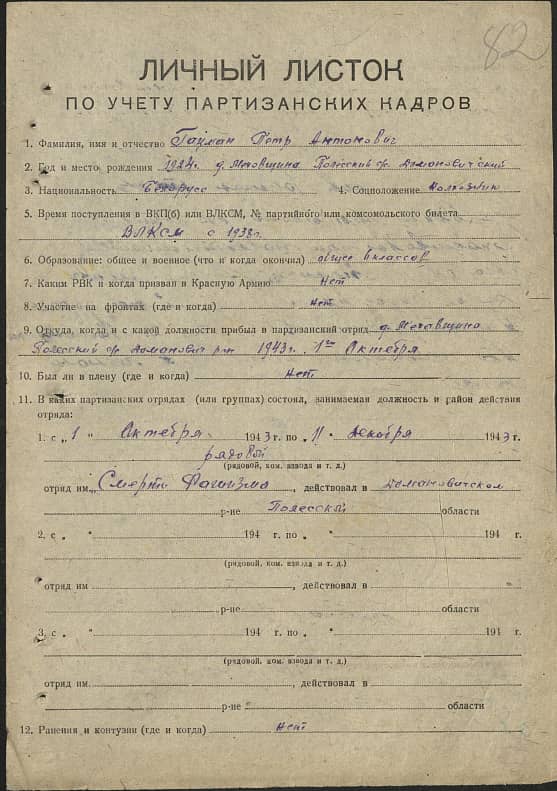 82
ЛИЧНЫЙ ЛИСТОК
ПО УЧЕТУ ПАРТИЗАНСКИХ КАДРОВ
1. Фамилия, имя и отчество Гацман Петр Антонович
2. Год и место рождения 1924г. д. Метовщина Полесский обр. Домановичский
3. Национальность Беларусс 4. Соцположение Колхозник
5. Время поступления в ВКП(б) или ВЛКСМ, № партийного или комсомольского билета
ВЛКСМ с 1938г.
6. Образование: общее и военное (что и когда окончил) общее 6 классов
7. Каким РВК и когда призван в Красную Армию Нет
8. Участие на фронтах (где и когда) Нет
9. Откуда, когда и с какой должности прибыл в партизанский отряд д. Метовщина
Полесский обр. Доманович р-н 1943г. 1го Октября
10. Был ли в плену (где и когда) Нет
11. В каких партизанских отрядах (или группах) состоял, занимаемая должность и район действия
отряда:
1. с „ 1 " Октября 1943 г. по „11 " Декабря 1943 г.
рядовой
(рядовой, ком. взвода и т. д.)
отряд им. „Смерть Фашизма , действовал в Домановичском
р-не Полесский области
2. с „ " 194 г. по „ " 194 г.
(рядовой, ком. взвода и т. д.)
отряд им , действовал в
р-не области
3. с „ " 194 г. по „ " 194 г.
(рядовой, ком. взвода и т. д.)
отряд им. , действовал в
р-не области
12. Ранения и контузии (где и когда) Нет